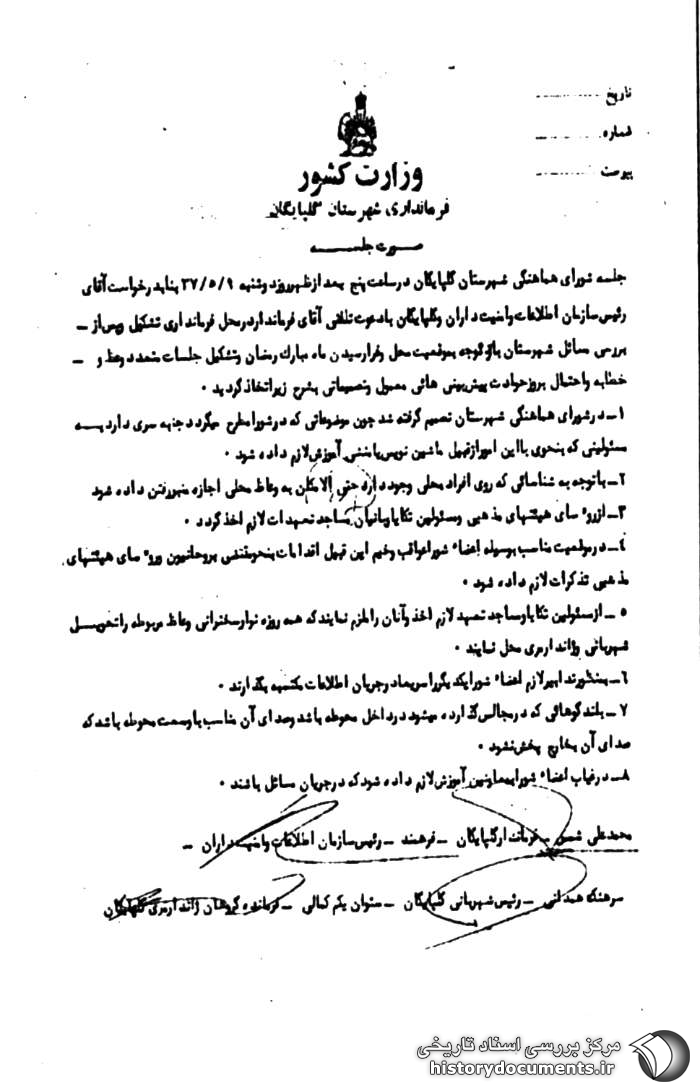 تاریخ
شماره
پیوست
وزارت کشور
فرمانداری شهرستان گلپایگان
صورت جلسه
جلسه شورای هماهنگی شهرستان گلپایگان در ساعت پنج بعد از ظهر روز دوشنبه ۳۷/۵/۹ بنا بدرخواست آقای
رئیس سازمان اطلاعات وامنیت داران وگلپایگان با دعوت تلفنی آقای فرماندار در محل فرمانداری تشکیل وپس از ــ
بررسی مسائل شهرستان با توجه بموقعیت محل وفرارسیدن ماه مبارک رمضان وتشکیل جلسات متعدد وعظ و ــ
خطابه واحتمال بروز حوادث پیش بینی هائی معمول وتصمیماتی بشرح زیر اتخاذ گردید ۰
۱ــ در شورای هماهنگی شهرستان تصمیم گرفته شد چون موضوعاتی که در شورا مطرح میگردد جنبه سری دارد به
مسئولینی که بنحوی با این امور از قبیل ماشین نویس یا منشی آموزش لازم داده شود ۰
۲ــ با توجه به شناسائی که روی افراد محلی وجود دارد حتی الامکان به وعاظ محلی اجازه منبر رفتن داده شود
۳ــ از روسای هیئتهای مذهبی ومسئولین تکایا وبانیان مساجد تعهدات لازم اخذ گردد ۰
۴ــ در موقعیت مناسب بوسیله اعضاء شورا عواقب وخیم این قبیل اقدامات بنحو مقتضی بروحانیون وروسای هیئتهای
مذهبی تذکرات لازم داده شود ۰
۵ ــ از مسئولین تکایا ومساجد تعهد لازم اخذ وآنان را ملزم نمایند که همه روزه نوار سخنرانی وعاظ مربوطه را تحویل
شهربانی وژاندارمری محل نمایند ۰
۶ــ بمنظور تدابیر لازم اعضاء شورا یکدیگر را سریعا در جریان اطلاعات مکتسبه بگذارند ۰
۷ ــ بلندگوهائی که در مجالس گذارده میشود در داخل محوطه باشد وصدای آن مناسب با وسعت محوطه باشد که
صدای آن بخارج پخش نشود ۰
۸ــ در غیاب اعضاء شورا بمعاونین آموزش لازم داده شود که در جریان مسائل باشند ۰
محمدعلی ــ فرماندار گلپایگان ــ فرهمند ــ رئیس سازمان اطلاعات وامنیت داران ــ
سرهنگ همدانی ــ رئیس شهربانی گلپایگان ــ ستوان یکم کمالی ــ فرمانده گروهان ژاندارمری گلپایگان
مرکز بررسی اسناد تاریخی
historydocuments.ir